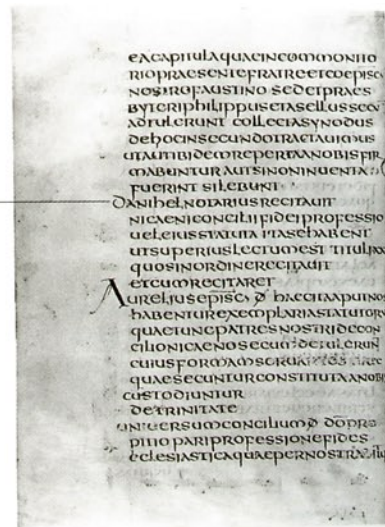 eacapitulaquaeincommonito
riopraesentefratreetcoepisc
nostrofaustino sedetpraes
byteriphilippusetasellussecu
adtulerunt collectasynodus
dehocinsecundotractauimus
utautibidemrepertaanobisfir
mabunturautsinoninuenta
fuerint silebunt
danihel notarius recitauit
nicaeniconcilii fidei professio
ueleiusstatuta itasehabent
utsuperius lectum est tituli xx
quosinordinerecitauit
etcumrecitaret
Aurelius episc d haecitaapudnos
habenturexemplariastatutoru
quaetuncpatresnostridecon
cilionicaenosecum detulerun
cuiusformamseruantes
quaesecunturconstitutaanobis
custodiuntur
detrinitate
uniuersumconcilium d do pro
pitio pariprofessionefides
eclesiasticaquaepernostra